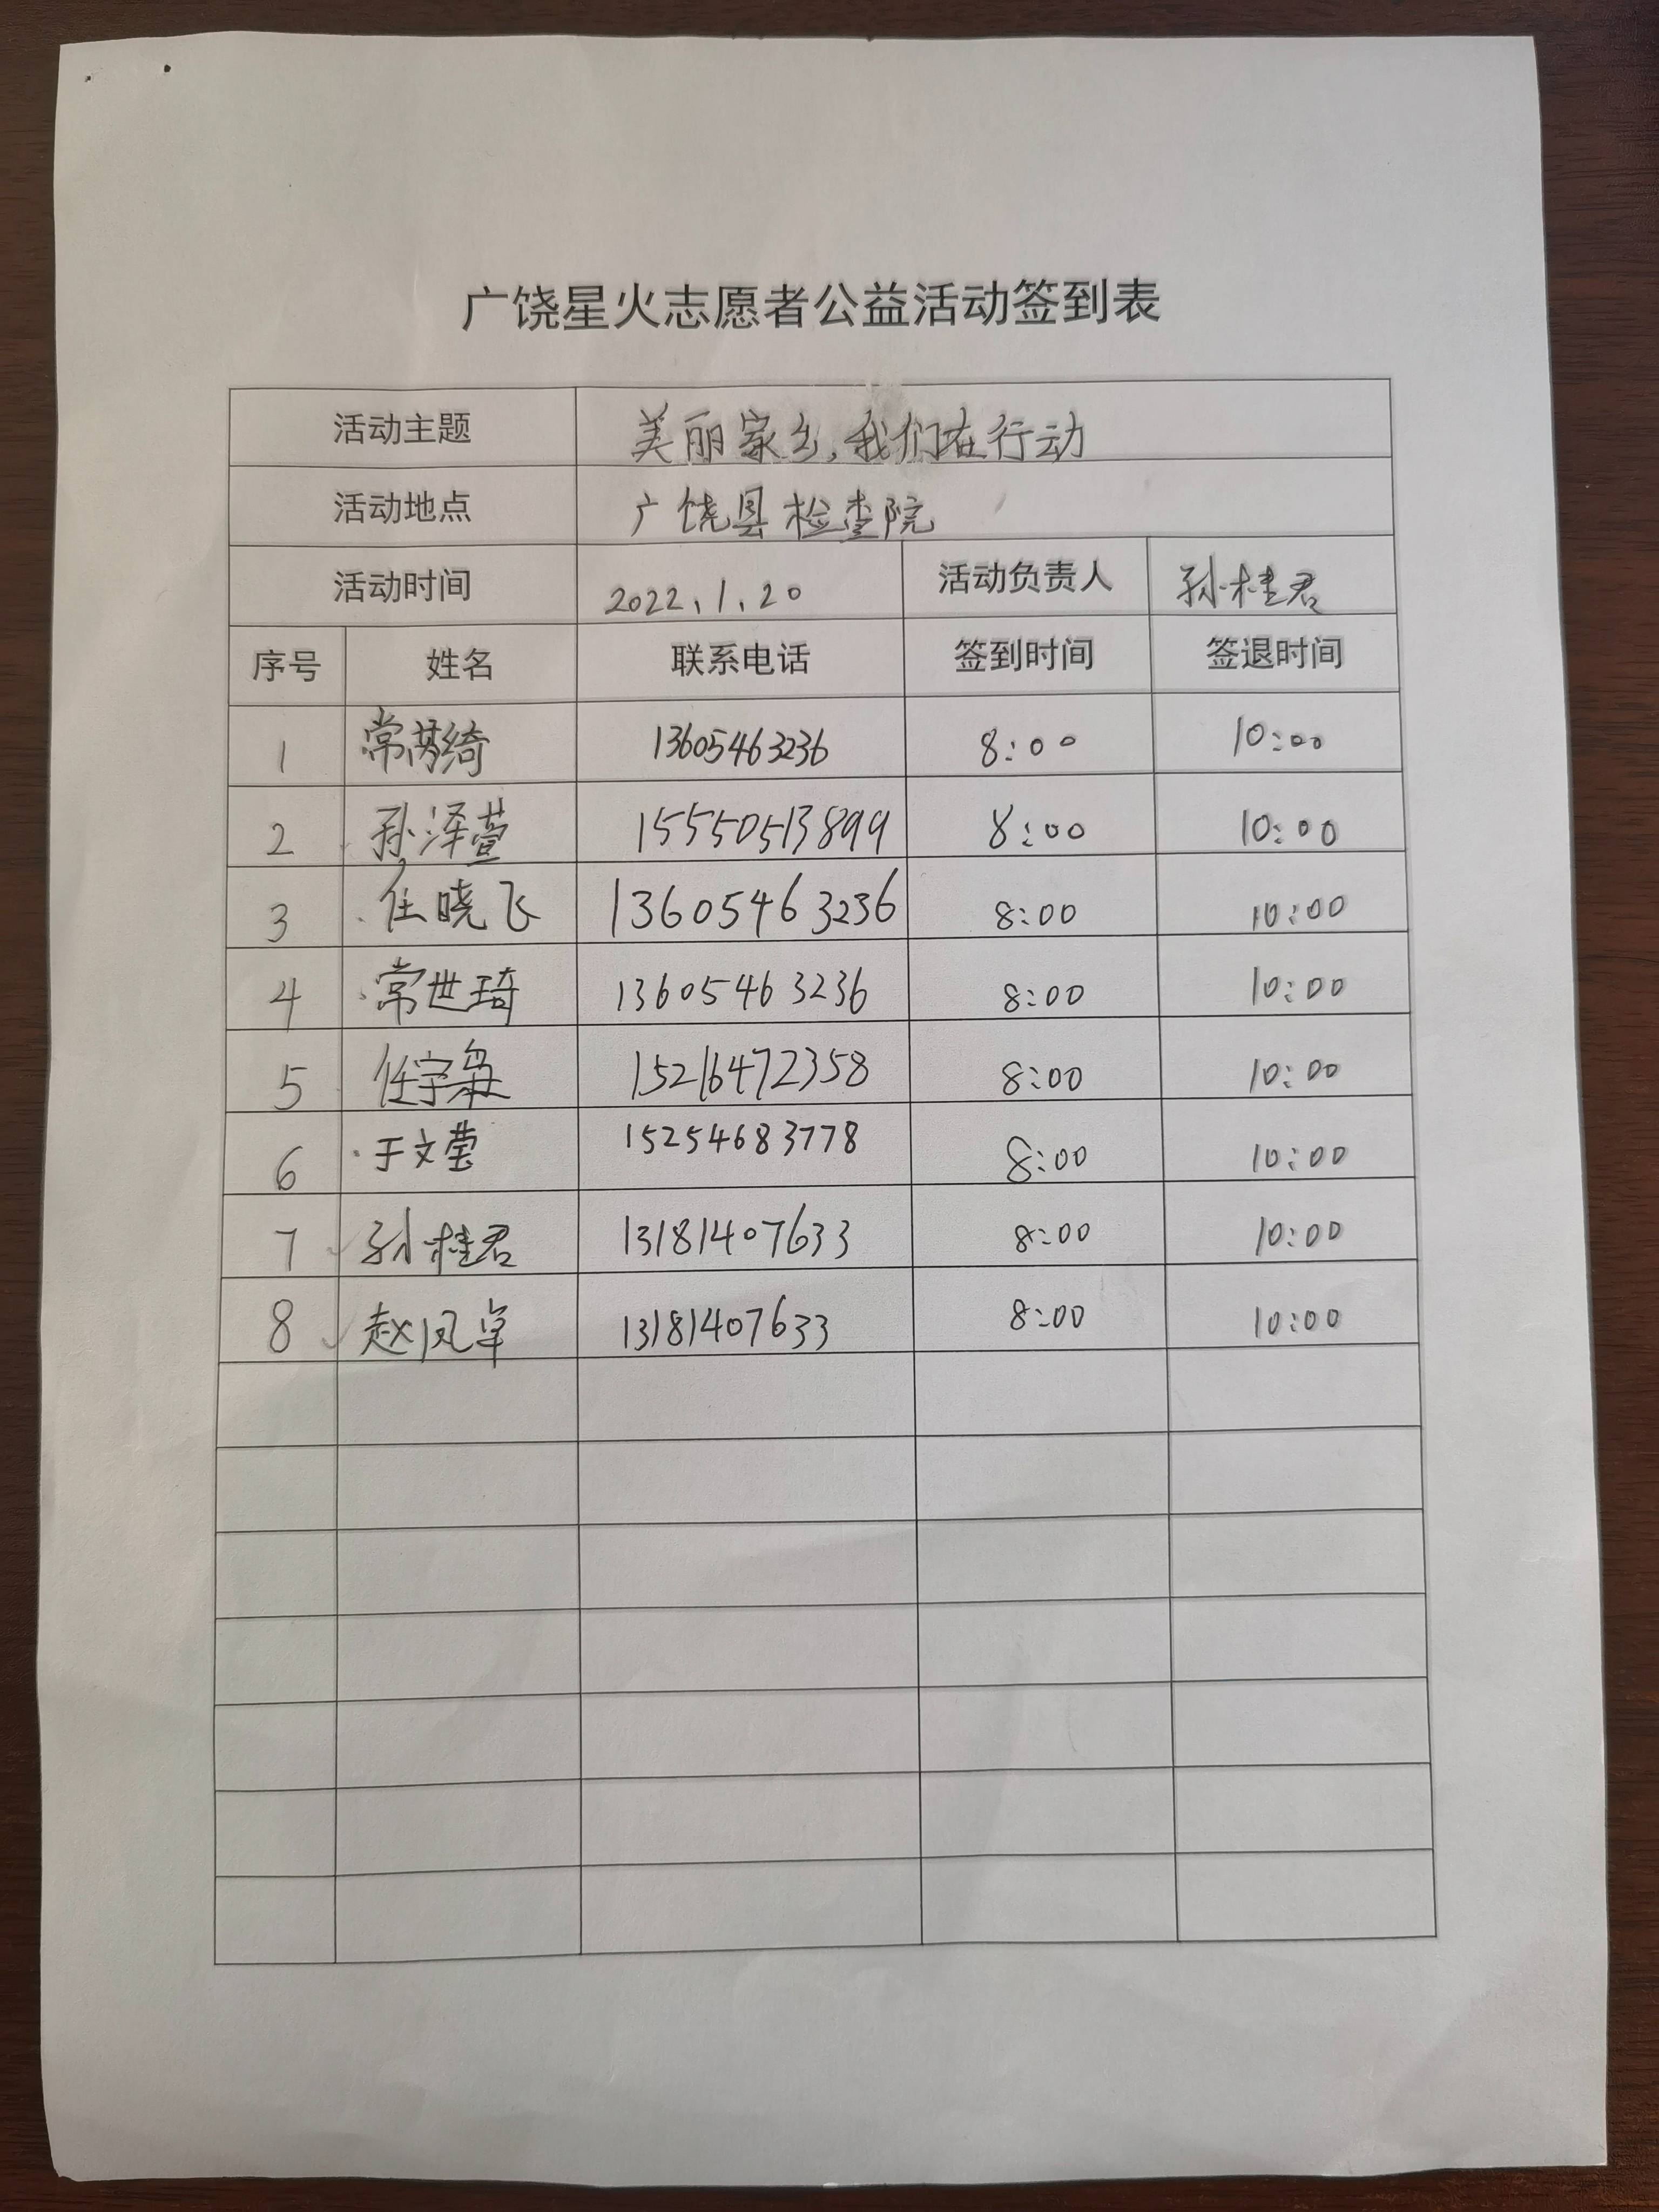 广饶星火志愿者公益活动签到表
活动主题 美丽家乡,我们在行动
活动地点 广饶县检查院
活动时间 2022.1.20 活动负责人 孙桂君
序号 姓名 联系电话 签到时间 签退时间
1 13605463236 8:00 10:00
2 孙泽萱 15550513899 8:00 10:00
3 任晓飞 13605463236 8:00 10:00
4 常世琦 13605463236 8:00 10:00
5 15216472358 8:00 10:00
6 于文莹 15254683778 8:00 10:00
7 孙桂君 13181407633 8:00 10:00
8 赵凤卓 13181407633 8:00 10:00